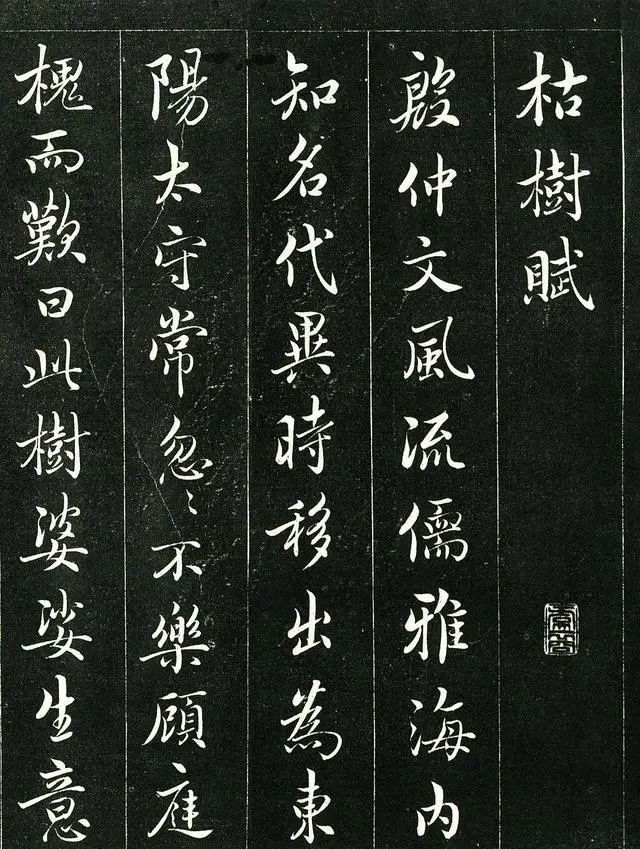 枯樹賦
殷仲文風流儒雅海内
知名代異時移出為東
陽太守常忽〻不樂顧庭
槐而歎曰此樹婆娑生意